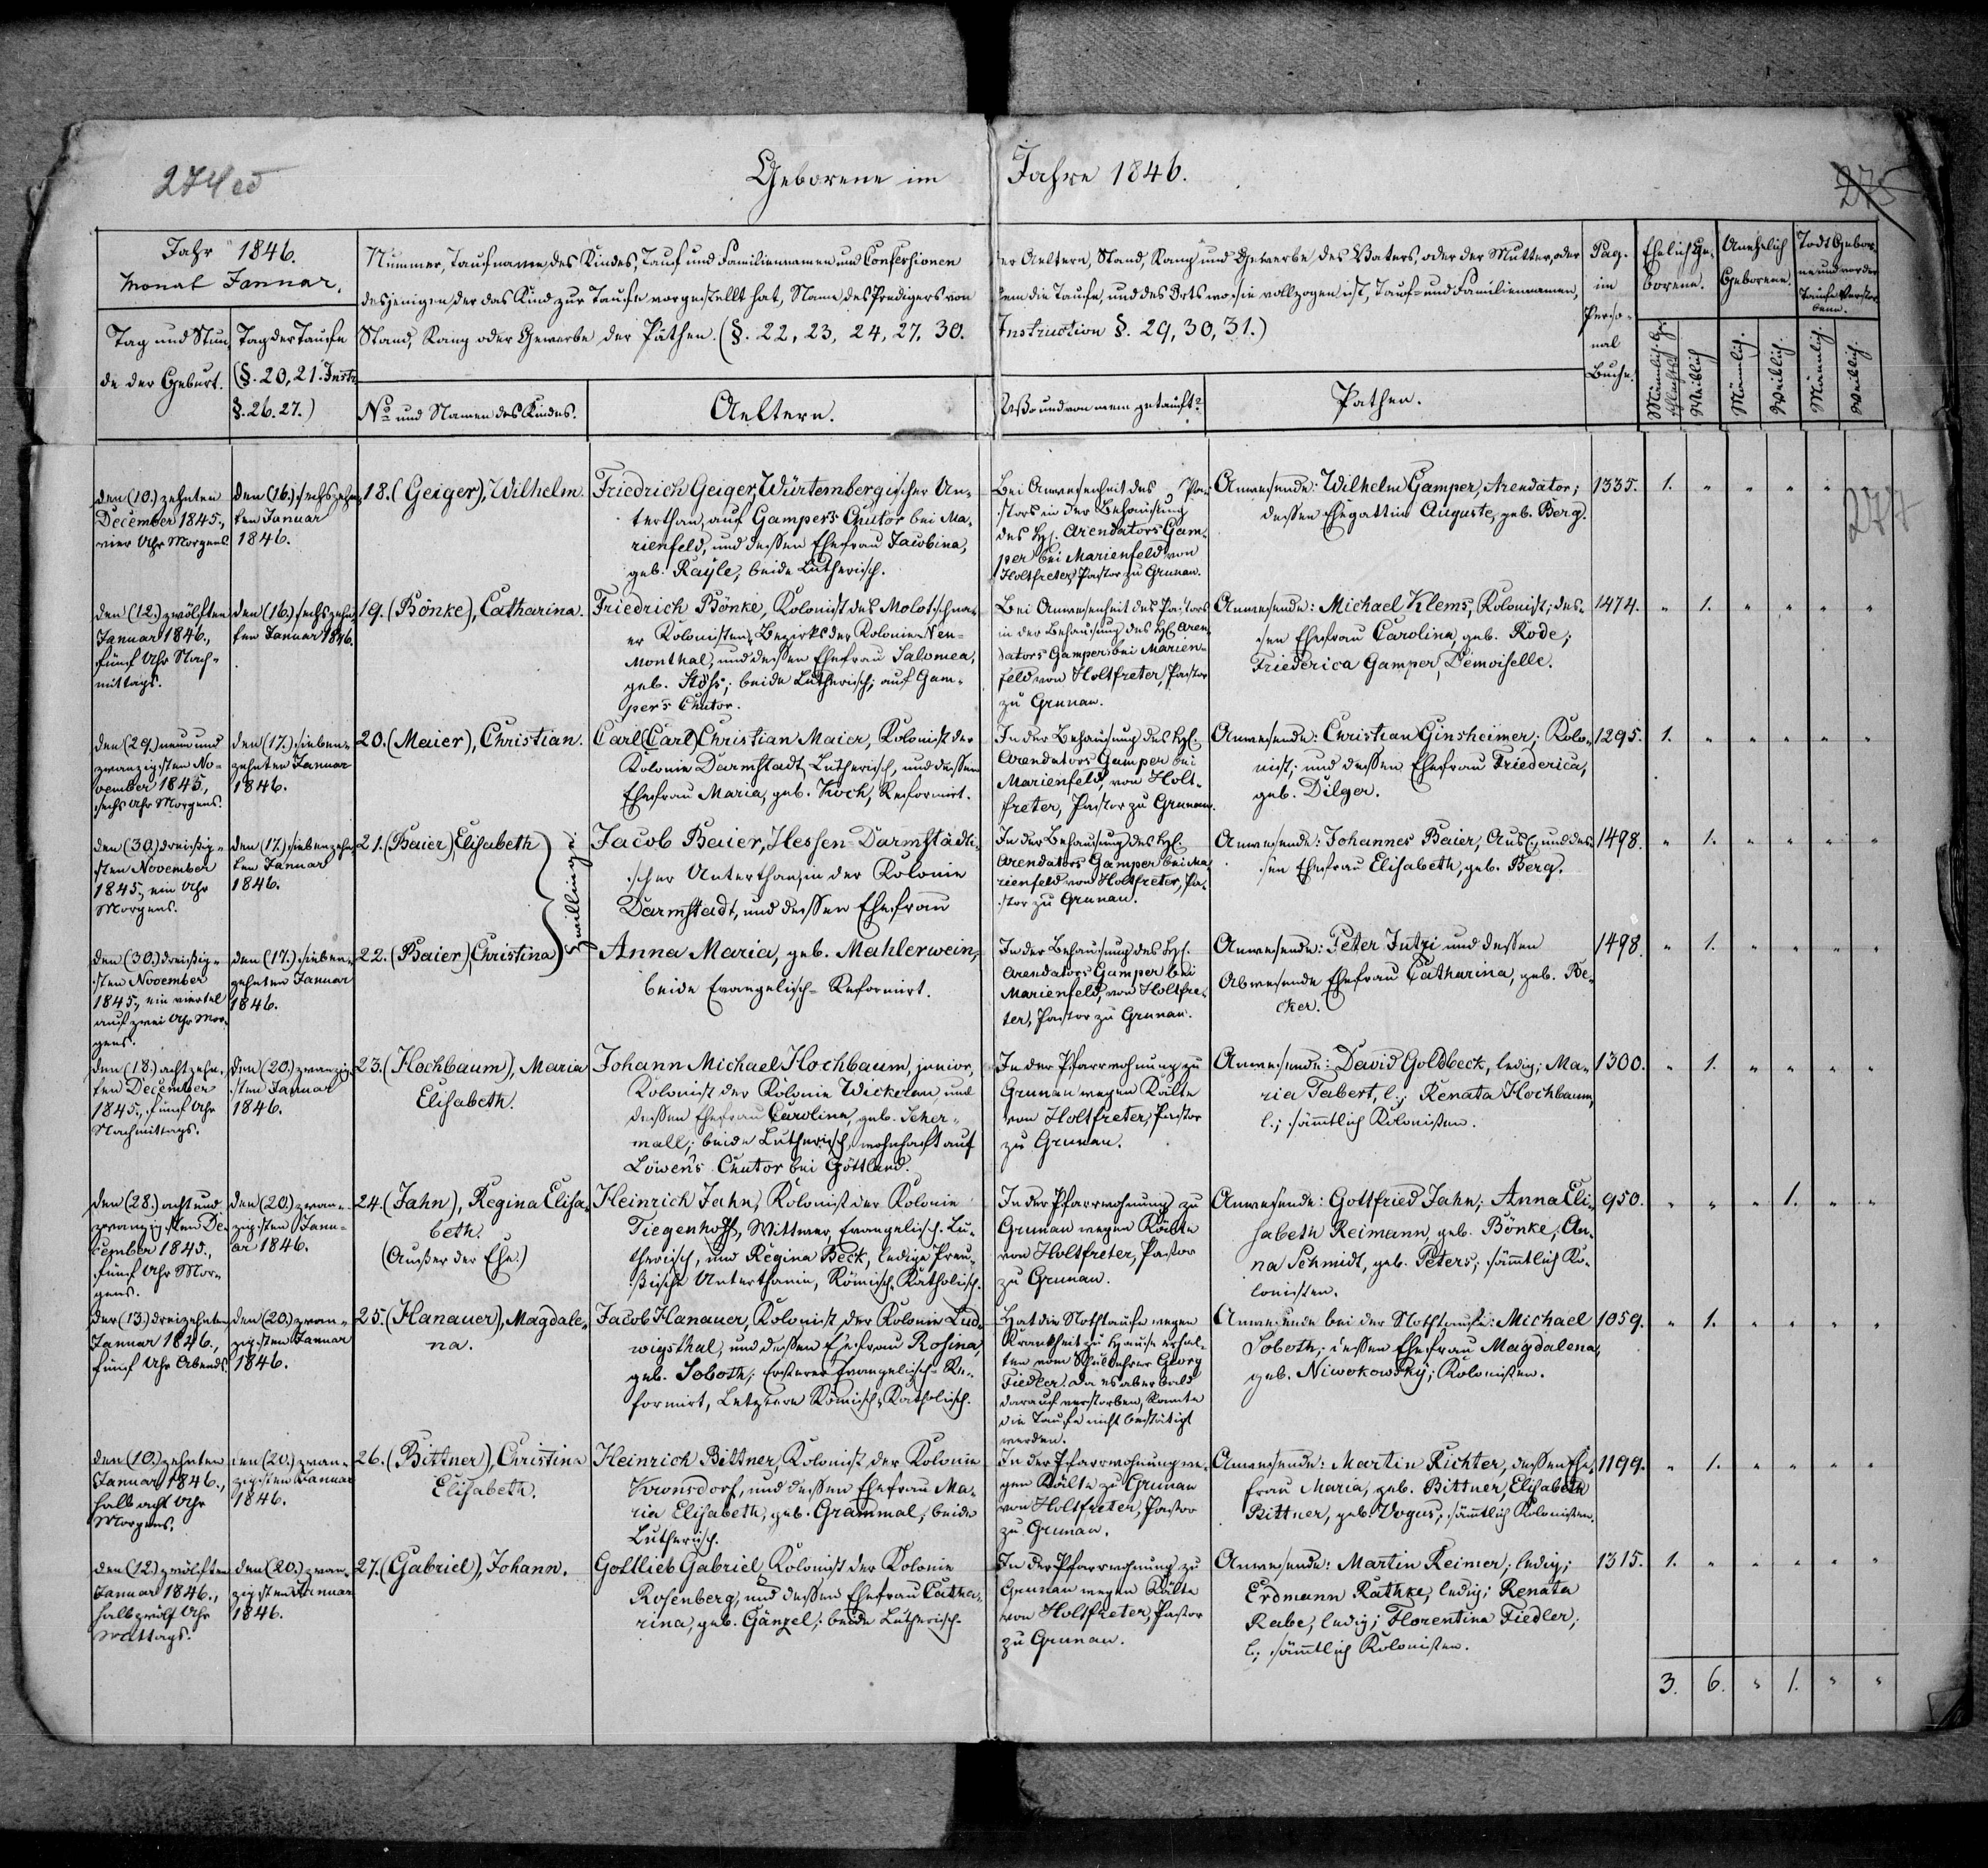 Geborene im Jahre 1846.
275
277
Jahr 1846.
Monat Januar.
Tag und Stun-
de der Geburt.
Tag der Taufe
(§. 20, 21. Instr.
§. 26. 27.)
Nummer, Taufname des Kindes, Tauf und Familiennamen und Confessionen
desjenigen der das Kind zur Taufe vorgestellt hat, Name des Predigers von
Stand, Rang oder Gewerbe der Pathen. (§. 22, 23, 24, 27, 30.
No und Namen des Kindes.
Aeltern.
der Aeltern, Stand, Rang und Gewerbe des Vaters, oder der Mutter, oder
dem die Taufe, und des Orts wo sie vollzogen ist, Tauf- und Familiennamen,
Instruction §. 29, 30, 31.)
Wo und von wem getauft?
Pathen.
Pag.
im
Perso-
nal
Buche.
Ehelich Ge-
borene.
Unehelich
Geborene.
Todt Gebor
ne und vor der
Taufe Verstor
bene.
Männlich. Ge-
schlechts
Weiblich
Männlich.
Weiblich.
Männlich.
Weiblich.
den (10.) zehnten
December 1845.,
vier Uhr Morgens
den (16.) sechszehn-
ten Januar
1846.
18. (Geiger), Wilhelm.
Friedrich Geiger, Würtembergischer Un-
terthan, auf Gampers Chutor bei Ma-
rienfeld, und dessen Ehefrau Jacobina,
geb. Rayle, beide Lutherisch.
Bei Anwesenheit des Pa-
stors in der Behausung
des H. Arendators Gam-
per bei Marienfeld von
Holtfreter, Pastor zu Grunau.
Anwesende: Wilhelm Gamper, Arendator;
dessen Ehegattin Auguste, geb. Berg.
1335. 1. " " " "
den (12.) zwölften
Januar 1846.,
fünf Uhr Nach-
mittags.
den (16.) sechszehn-
ten Januar 1846.
19. (Bönke), Catharina.
Friedrich Bönke, Kolonist des Molotschna-
er Kolonisten-Bezirks der Kolonie Neu-
Monthal, und dessen Ehefrau Salomea,
geb. Stöhs; beide Lutherisch; auf Gam-
pers Chutor.
Bei Anwesenheit des Pastors
in der Behausung des H. Aren-
dators Gamper bei Marien-
feld von Holtfreter, Pastor
zu Grunau.
Anwesende: Michael Klems, Kolonist; des-
sen Ehefrau Carolina, geb. Rode;
Friederica Gamper, Demoiselle.
1474. " 1. " " " "
den (29.) neun und
zwanzigsten No-
vember 1845.,
sechs Uhr Morgens.
den (17.) sieben-
zehnten Januar
1846.
20. (Maier), Christian.
Carl (Carl) Christian Maier, Kolonist der
Kolonie Darmstadt, Lutherisch, und dessen
Ehefrau Maria, geb. Koch, Reformirt.
In der Behausung des H.
Arendators Gamper bei
Marienfeld, von Holt-
freter, Pastor zu Grunau.
Anwesende: Christian Ginsheimer; Kolo-
nist; und dessen Ehefrau Friederica,
geb. Dilger.
1295. 1. " " " " "
den (30.) dreißig-
sten November
1845., ein Uhr
Morgens.
den (17.) siebenzehn-
ten Januar
1846.
21. (Baier), Elisabeth
Zwillinge.
Jacob Baier, Hessen-Darmstädti-
scher Unterthan, in der Kolonie
Darmstadt, und dessen Ehefrau
In der Behausung des H.
Arendators Gamper bei Ma-
rienfeld von Holtfreter, Pa-
stor zu Grunau.
Anwesende: Johannes Baier, Ausl., und des-
sen Ehefrau Elisabeth, geb. Berg.
1498. " 1. " " " "
den (30.) dreißig-
sten November
1845., ein viertel
auf zwei Uhr Mor-
gens.
den (17.) sieben-
zehnten Januar
1846.
22. (Baier) Christina
Anna Maria, geb. Mahlerwein,
beide Evangelisch-Reformirt.
In der Behausung des H.
Arendators Gamper bei
Marienfeld, von Holtfre-
ter, Pastor zu Grunau.
Anwesende: Peter Jutzi und dessen
Abwesende Ehefrau Catharina, geb. Be-
cker.
1498. " 1. " " " "
den (18.) achtzehn-
ten December
1845., fünf Uhr
Nachmittags.
den (20.) zwanzig-
sten Januar
1846.
23. (Hochbaum), Maria
Elisabeth.
Johann Michael Hochbaum, junior,
Kolonist der Kolonie Wickerau, und
dessen Ehefrau Carolina, geb. Scher-
mall; beide Lutherisch, wohnhaft auf
Löwens Chutor bei Göttland.
In der Pfarrwohnung zu
Grunau wegen Kälte
von Holtfreter, Pastor
zu Grunau.
Anwesende: David Goldbeck, ledig; Ma-
ria Tabert, l.; Renata Hochbaum,
l.; sämtlich Kolonisten.
1300. " 1. " " " "
den (28.) acht und
zwanzigsten De-
cember 1845.,
fünf Uhr Mor-
gens.
den (20.) zwan-
zigsten Janu-
ar 1846.
24. (Jahn), Regina Elisa-
beth.
(Außer der Ehe.)
Heinrich Jahn, Kolonist der Kolonie
Tiegenhoff, Wittwer, Evangelisch-Lu-
therisch, und Regina Beck, ledige Preu-
ßische Unterthanin, Römisch-Katholisch.
In der Pfarrwohnung zu
Grunau wegen Kälte
von Holtfreter, Pastor
zu Grunau.
Anwesende: Gottfried Jahn; Anna Eli-
sabeth Reimann, geb. Bönke; An-
na Schmidt, geb. Peters; sämtlich Ko-
lonisten.
950. " " " 1. " "
der (13.) dreizehnten
Januar 1846.,
fünf Uhr Abends.
den (20.) zwan-
zigsten Januar
1846.
25. (Hanauer), Magdale-
na.
Jacob Hanauer, Kolonist der Kolonie Lud-
wigsthal, und dessen Ehefrau Rosina,
geb. Soboth; Ersterer Evangelisch-Re-
formirt, Letztere Römisch-Katholisch.
Hat die Nothtaufe wegen
Krankheit zu Hause erhal-
ten vom Schullehrer Georg
Fiedler. Da es aber bald
darauf verstorben, konnte
die Taufe nicht bestätigt
werden.
Anwesende bei der Nothtaufe: Michael
Soboth; dessen Ehefrau Magdalena,
geb. Niwokowsky; Kolonisten.
1059. " 1. " " " "
den (10.) zehnten
Januar 1846.,
halb acht Uhr
Morgens.
den (20.) zwan-
zigsten Januar
1846.
26. (Bittner), Christina
Elisabeth.
Heinrich Bittner, Kolonist der Kolonie
Kronsdorf, und dessen Ehefrau Ma-
ria Elisabeth, geb. Grammal; beide
Lutherisch.
In der Pfarrwohnung we-
gen Kälte zu Grunau
von Holtfreter, Pastor
zu Grunau.
Anwesende: Martin Richter, dessen Ehe-
frau Maria, geb. Bittner, Elisabeth
Bittner, geb. Vogus; sämtlich Kolonisten.
1199. " 1. " " " "
den (12.) zwölften
Januar 1846.,
halb zwölf Uhr
Mittags.
den (20.) zwan-
zigsten Januar
1846.
27. (Gabriel), Johann.
Gottlieb Gabriel, Kolonist der Kolonie
Rosenberg, und dessen Ehefrau Catha-
rina, geb. Gänzel; beide Lutherisch.
In der Pfarrwohnung zu
Grunau wegen Kälte
von Holtfreter, Pastor
zu Grunau.
Anwesende: Martin Reimer; ledig;
Erdmann Rathke; ledig; Renata
Rabe, ledig; Florentina Fiedler;
l.; sämtlich Kolonisten.
1315. 1. " " " " "
3. 6. " 1. " "